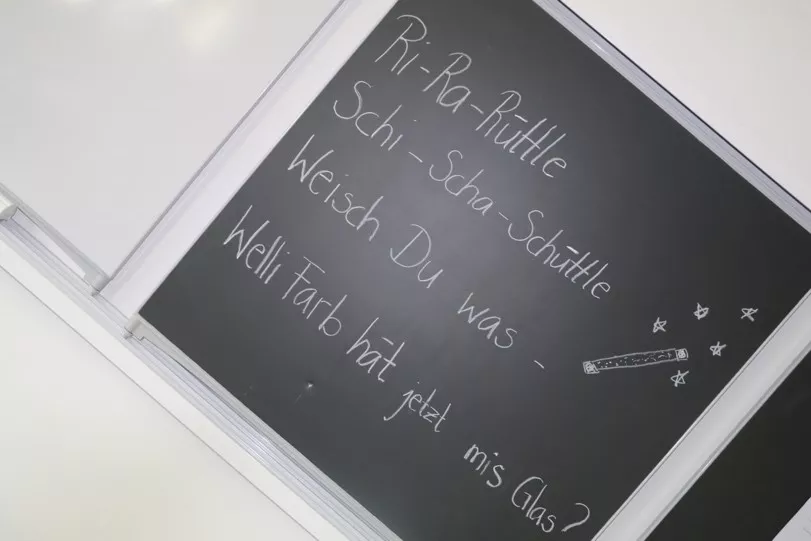 Ri-Ra-Rüttle
Schi-Scha-Schüttle
Weisch Du was -
Welli Farb hät jetzt mis Glas?